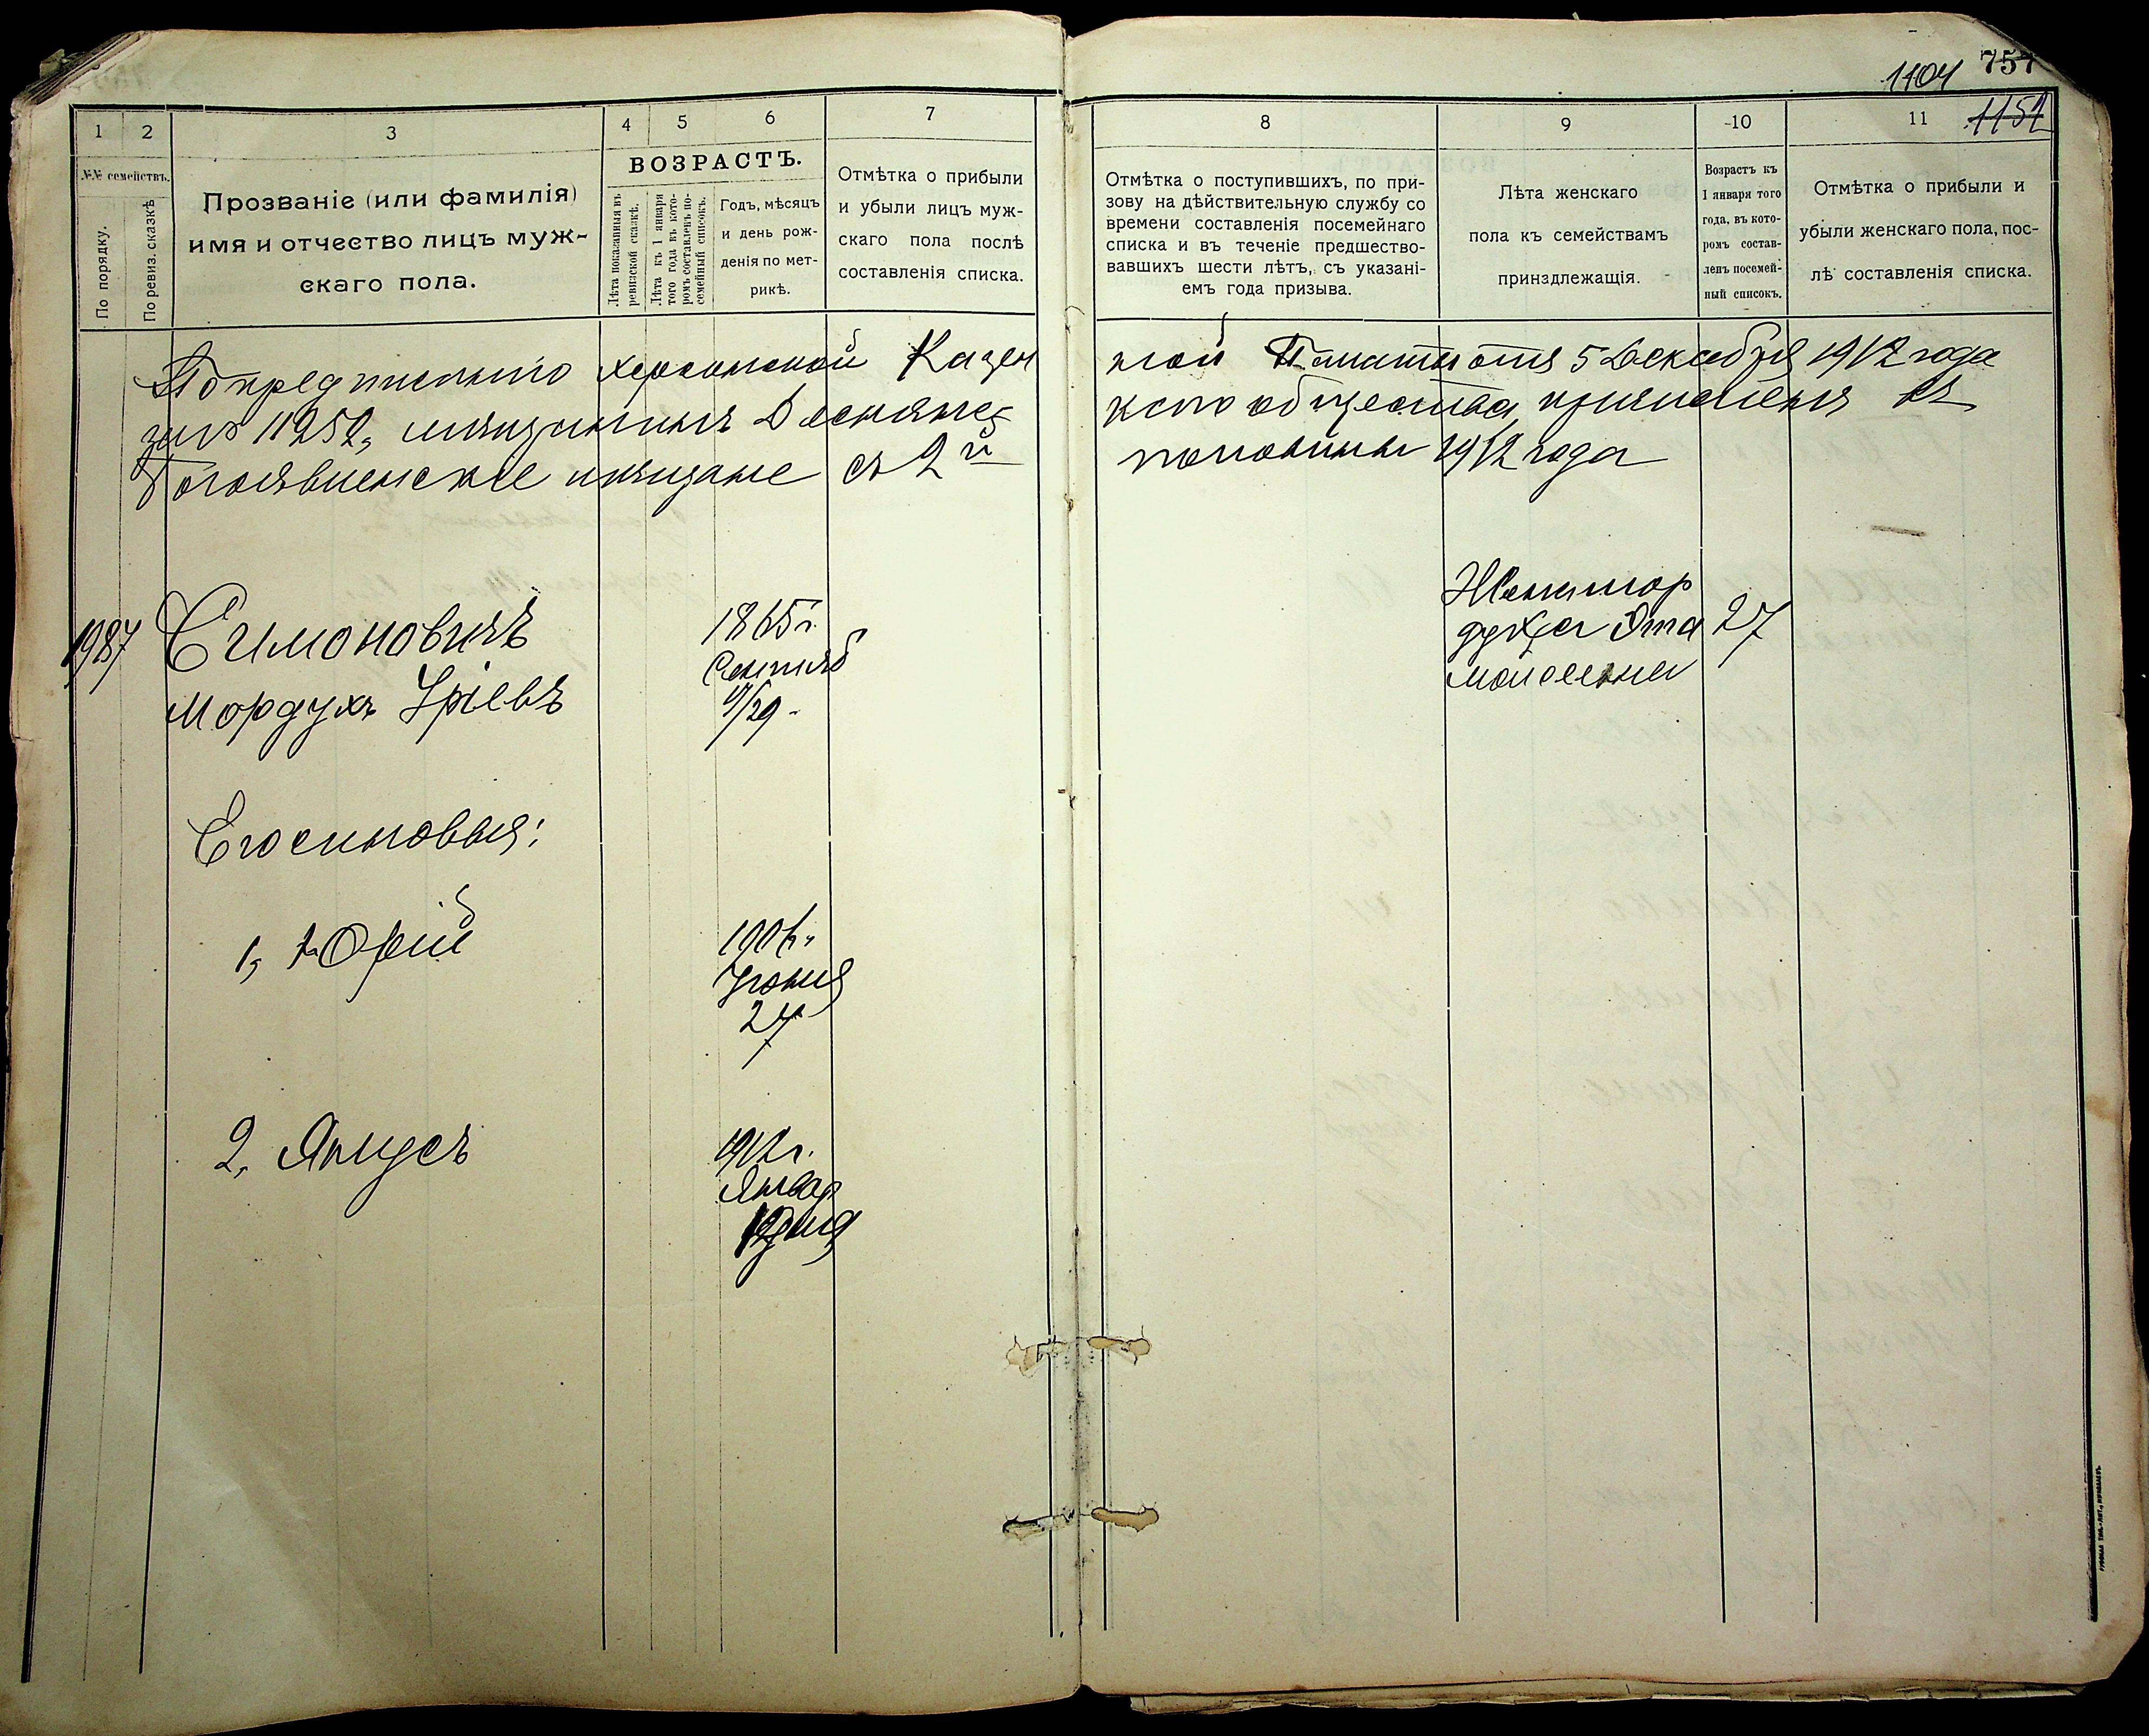 1104 757
1152
1
2
3
4
5
6
7
8
9
10
11
№№ семействъ.
По порядку.
По ревиз. сказкѣ
Прозваніе (или фамилія)
имя и отчество лицъ муж-
скаго пола.
ВОЗРАСТЪ.
Лѣта показанныя въ
ревизской сказкѣ.
Лѣта къ 1 января
того года въ кото-
ромъ составленъ по-
семейный списокъ.
Годъ, мѣсяцъ
и день рож-
денія по мет-
рикѣ.
Отмѣтка о прибыли
и убыли лицъ муж-
скаго пола послѣ
составленія списка.
Отмѣтка о поступившихъ, по при-
зову на дѣйствительную службу со
времени составленія посемейнаго
списка и въ теченіе предшество-
вавшихъ шести лѣтъ, съ указані-
емъ года призыва.
Лѣта женскаго
пола къ семействамъ
принздлежащія.
Возрастъ къ
1 января того
года, въ кото-
ромъ состав-
ленъ посемей-
ный списокъ.
Отмѣтка о прибыли и
убыли женскаго пола, пос-
лѣ составленія списка.
По предписанію Херсонской Казен ной Палаты отъ 5 Декабря 1912 года
за № 11252, мѣщанинъ кого общества, причисленъ въ
Богоявленскіе мѣщане съ 2й половины 1912 года
1987 Симоновичъ
Мордухъ Уріевъ
1865г.
Сентяб
17/29
Жена Мор
духа Эта 27
Моисеевна
Его сыновья:
1, Юрій
Іюня
24
2,
1912г.
Январ